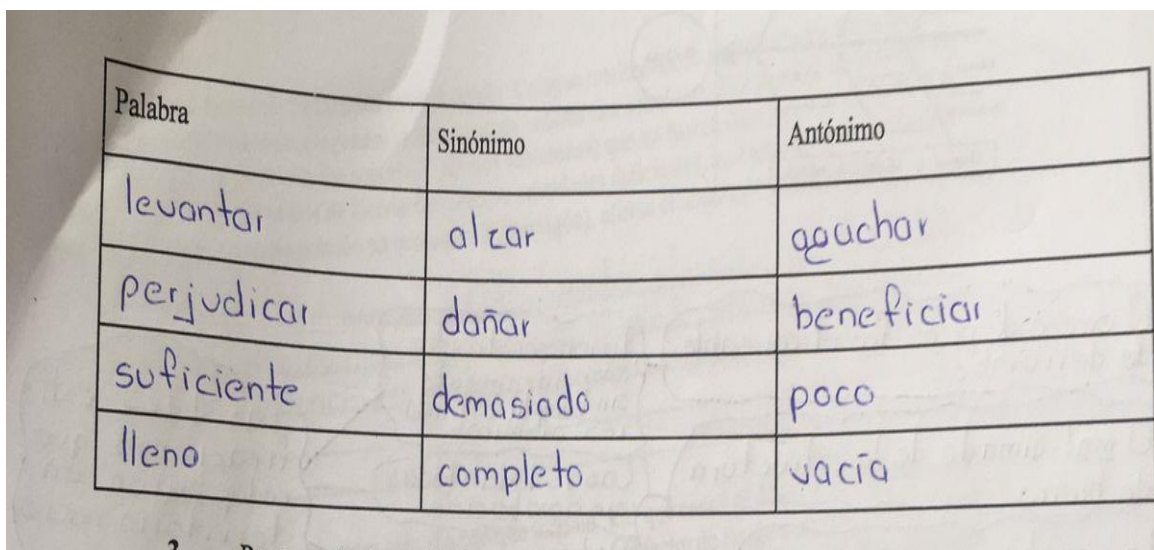 Palabra Sinónimo Antónimo
levantar alzar agachar
perjudicar dañar beneficiar
suficiente demasiado poco
lleno completo vacía